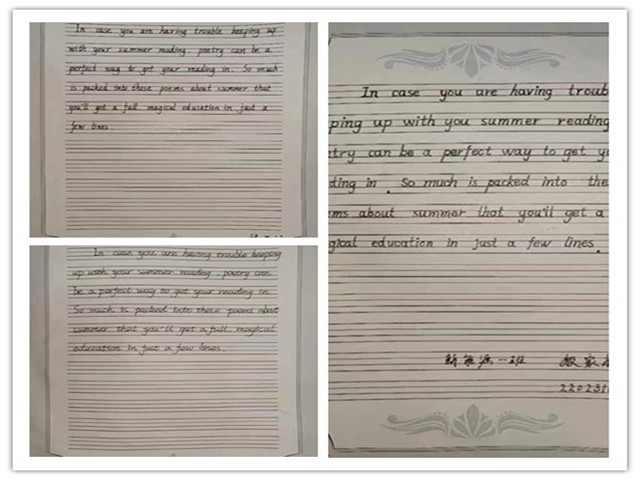 In case you are having trouble keeping up
with your summer reading, poetry can be a
perfect way to get your reading in. So much
is packed into these poems about summer that
you'll get a full, magical education in just a
few lines.
In case you are having trouble keeping
up with your summer reading, poetry can
be a perfect way to get your reading in.
So much is packed into these poems about
summer that you'll get a full, magical
education in just a few lines.
In case you are having troub
ping up with you summer reading
try can be a perfect way to get yo
ding in. So much is packed into the
ms about summer that you'll get a
gical education in just a few lines.
新能源一班
220231